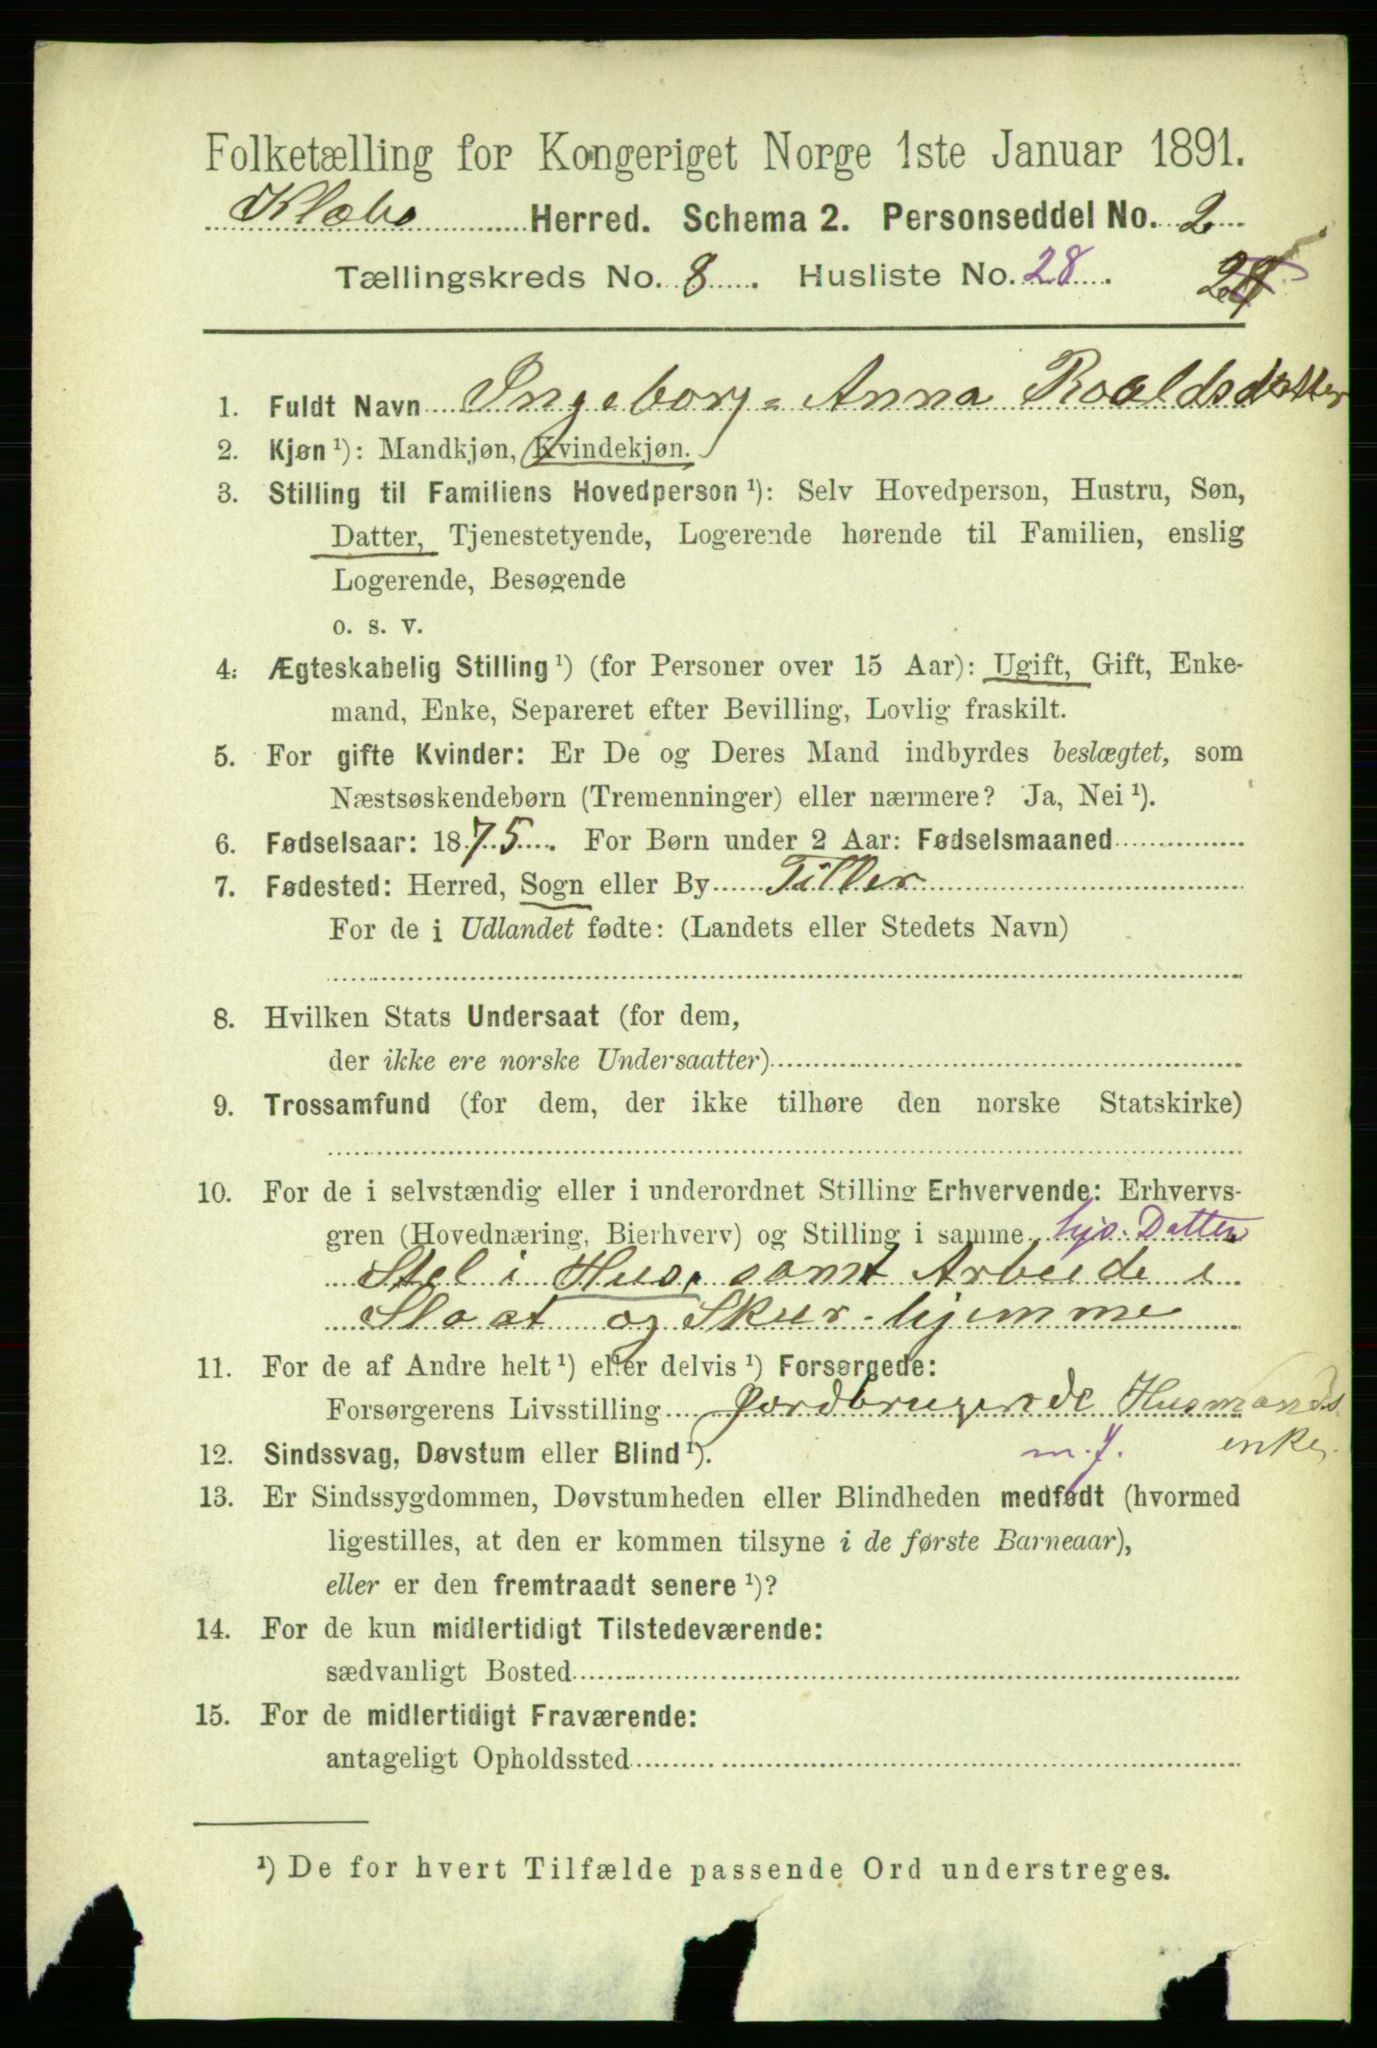 Folketælling for Kongeriget Norge 1ste Januar 1891.
Klæbo Herred. Schema 2. Personseddel No. 2
Tællingskreds No. 8. Husliste No. 28.
1. Fuldt Navn Ingeborg-Anna Roaldsdatter
2. Kjøn ¹): Mandkjøn, Kvindekjøn.
3. Stilling til Familiens Hovedperson ¹): Selv Hovedperson, Hustru, Søn,
Datter, Tjenestetyende, Logerende hørende til Familien, enslig
Logerende, Besøgende
o. s. v.
4. Ægteskabelig Stilling ¹) (for Personer over 15 Aar): Ugift, Gift, Enke-
mand, Enke, Separeret efter Bevilling, Lovlig fraskilt.
5. For gifte Kvinder: Er De og Deres Mand indbyrdes beslægtet, som
Næstsøskendebørn (Tremenninger) eller nærmere? Ja, Nei ¹).
6. Fødselsaar: 1875. For Børn under 2 Aar: Fødselsmaaned
7. Fødested: Herred, Sogn eller By Tiller
For de i Udlandet fødte: (Landets eller Stedets Navn)
8. Hvilken Stats Undersaat (for dem,
der ikke ere norske Undersaatter)
9. Trossamfund (for dem, der ikke tilhøre den norske Statskirke)
10. For de i selvstændig eller i underordnet Stilling Erhvervende: Erhvervs-
gren (Hovednæring, Bierhverv) og Stilling i samme hjo. Datter
Stel i Hus, samt Arbeide i
Slaat og Skur hjemme
11. For de af Andre helt ¹) eller delvis ¹) Forsørgede:
Forsørgerens Livsstilling Jordbrugende Husmands
enke.
12. Sindssvag, Døvstum eller Blind ¹). m. j.
13. Er Sindssygdommen, Døvstumheden eller Blindheden medfødt (hvormed
ligestilles, at den er kommen tilsyne i de første Barneaar),
eller er den fremtraadt senere ¹)?
14. For de kun midlertidigt Tilstedeværende:
sædvanligt Bosted
15. For de midlertidigt Fraværende:
antageligt Opholdssted
¹) De for hvert Tilfælde passende Ord understreges.